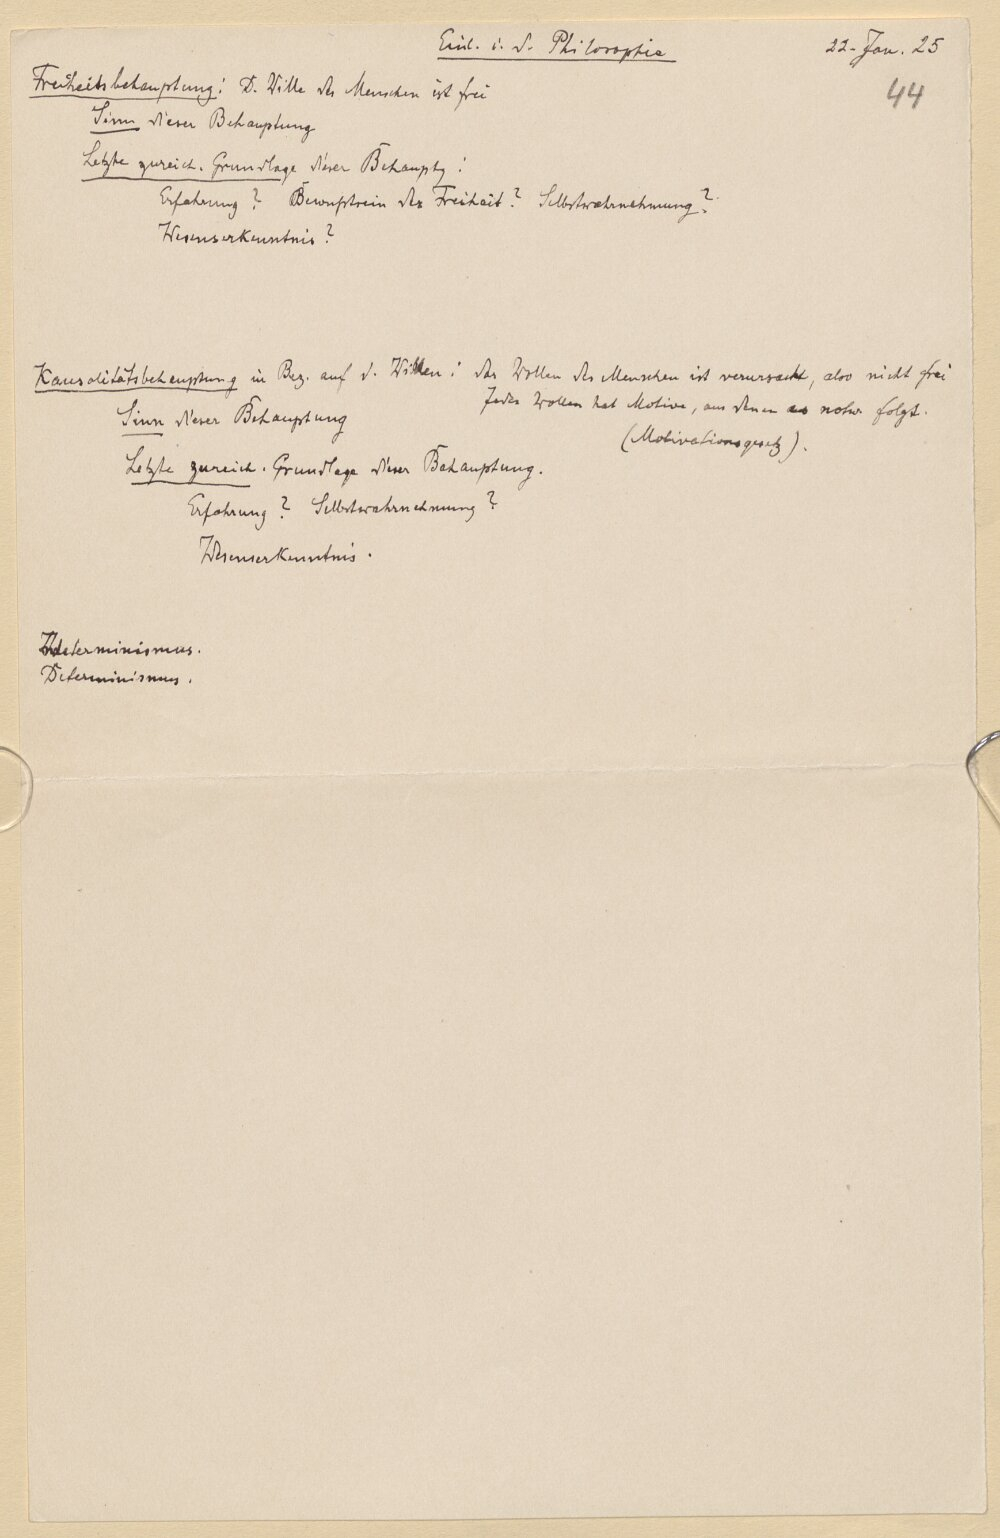 Einl. i. d. Philosophie
22. Jan. 25
44
Freiheitsbehauptung: D. Wille des Menschen ist frei
Sinn dieser Behauptung
Letzte zureich. Grundlage dieser Behauptg:
Erfahrung? Bewußtsein der Freiheit? Selbstwahrnehmung?
Wesenserkenntnis?
Kausalitätsbehauptung in Bez. auf d. Willen: das Wollen des Menschen ist verursacht, also nicht frei
Jedes Wollen hat Motive, aus denen es notw folgt.
Sinn dieser Behauptung
(Motivationsgesetz).
Letzte zureich. Grundlage dieser Behauptung.
Erfahrung? Selbstwahrnehmung?
Wesenserkenntnis.
Indeterminismus.
Determinismus.